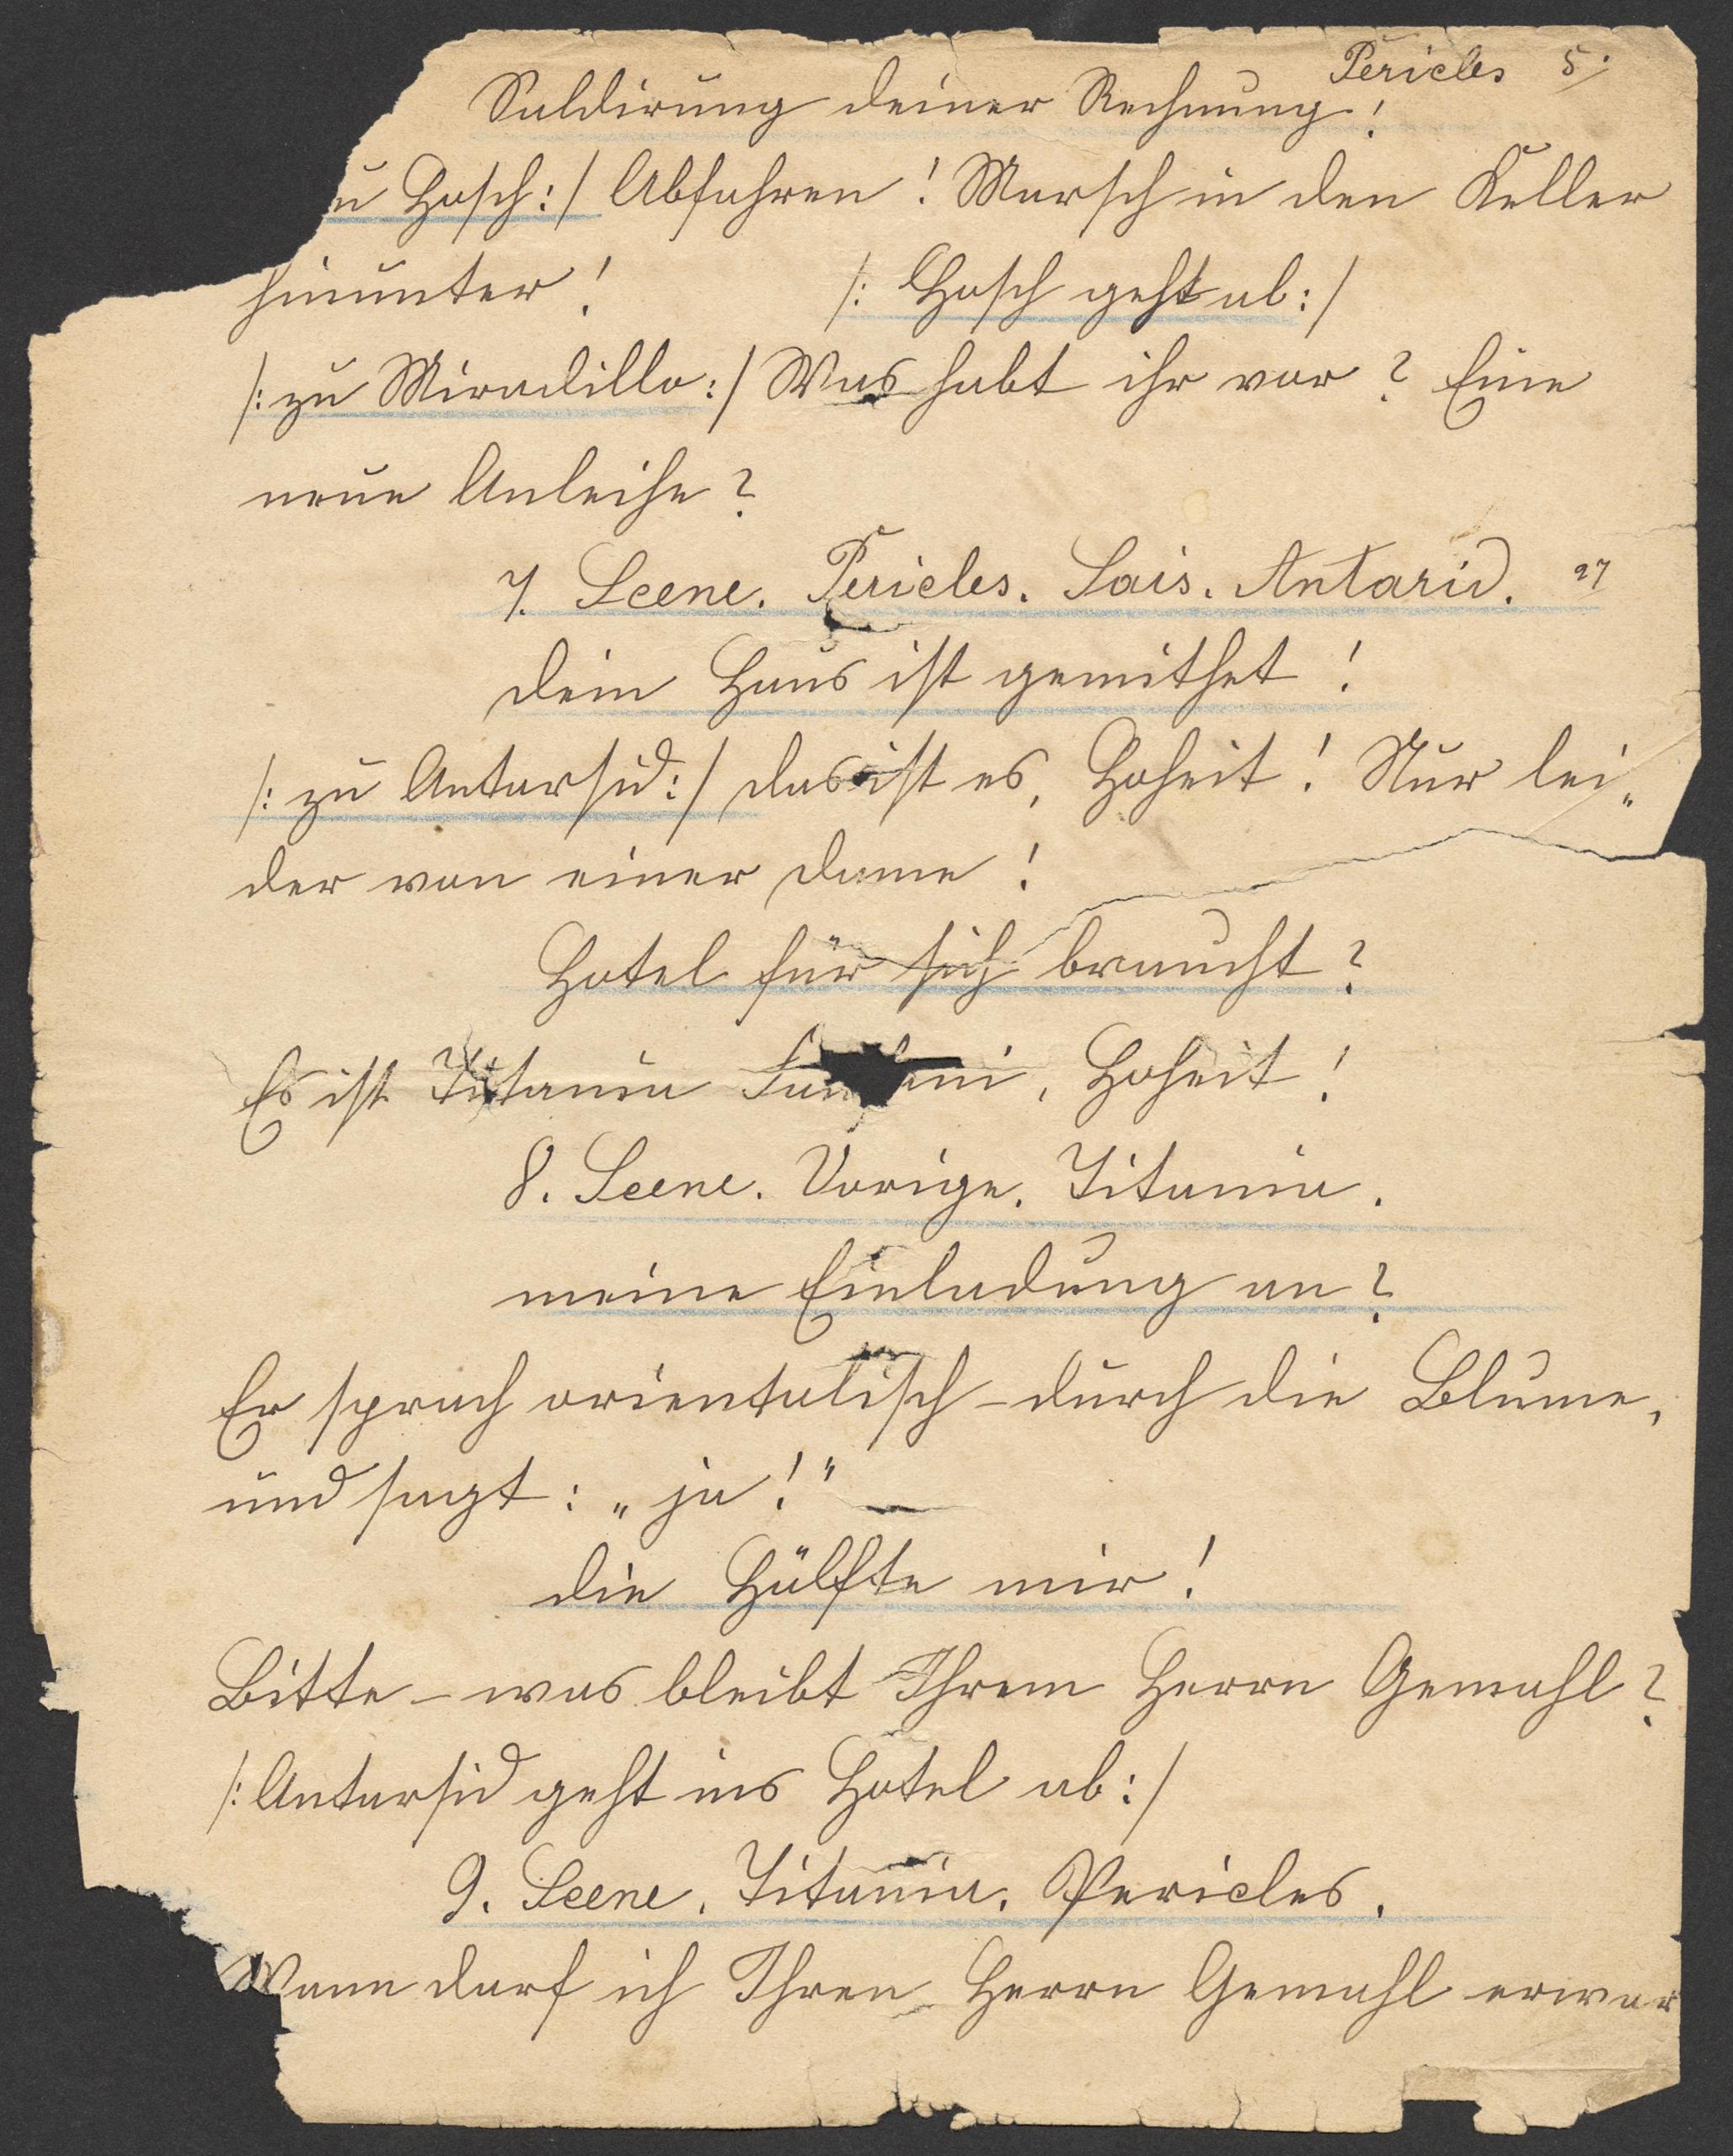 Pericles 5.
Saldirung deiner Rechnung!
zu Hosch:/ Abfahren! Marsch in den Keller
hinunter! /: Hosch geht ab:/
/: zu Miradillo:/ Was habt ihr vor? Eine
neue Anleihe?
7. Scene. Pericles. Lais. Antarsid. 27
dein Haus ist gemithet!
/: zu Antarsid:/ das ist es, Hoheit! Nur lei„
der von einer Dame!
Hotel für sich braucht?
Es ist Titania, Hoheit!
8. Scene. Vorige. Titania.
meine Einladung an?
Er sprach orientalisch – durch die Blume,
und sagt: „ja!“
die Hälfte mir!
Bitte – was bleibt Ihrem Herrn Gemahl?
/: Antarsid geht ins Hotel ab:/
9. Scene. Titania. Pericles.
Wann darf ich Ihren Herrn Gemahl erwar